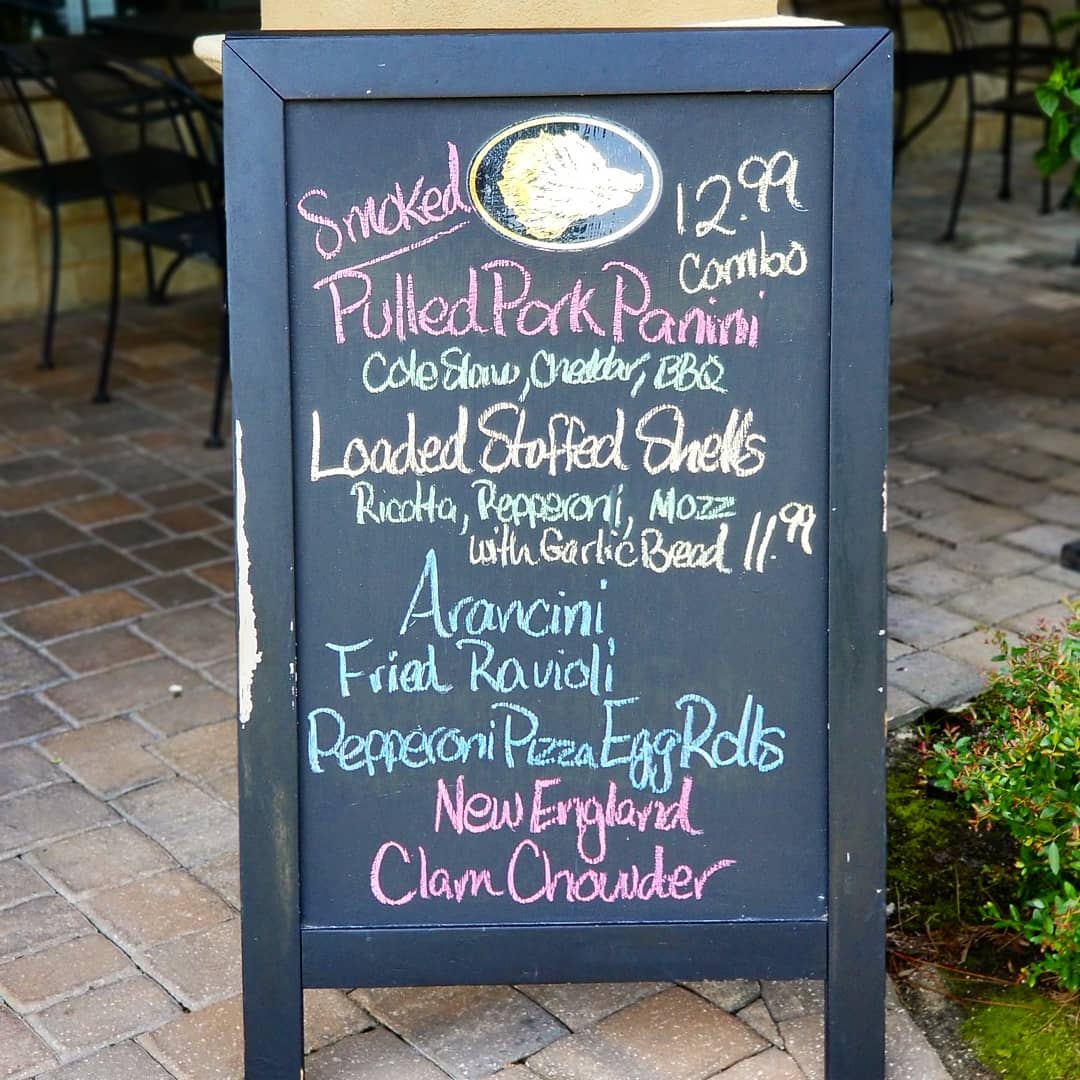 Smoked
12.99
Combo
Pulled Pork Panini
Cole Slaw, Cheddar, BBQ
Loaded Stuffed Shells
Ricotta, Pepperoni, Mozz
with Garlic Bread 11.99
Arancini
Fried Ravioli
Pepperoni Pizza Egg Rolls
New England
Clam Chowder